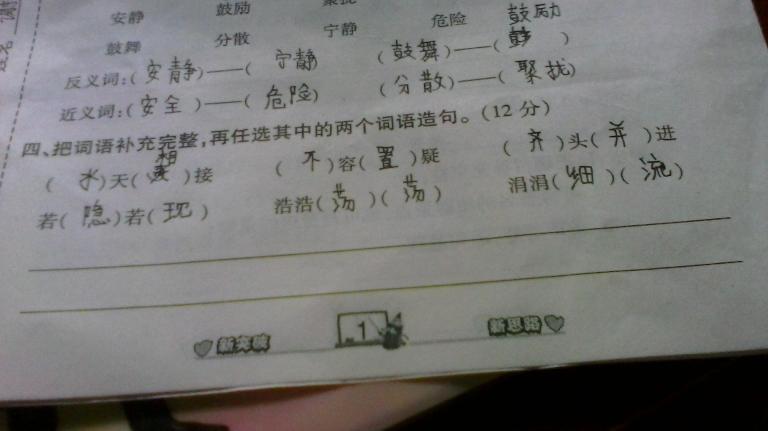 安静 鼓励 聚拢
鼓舞 分散 宁静 危险
鼓励
反义词:(安静)——(宁静) (鼓舞)——( )
近义词:(安全)——(危险) (分散)——(聚拢)
四、把词语补充完整,再任选其中的两个词语造句。(12分)
(水)天(相)接 (不)容(置)疑 (齐)头(并)进
若(隐)若(现) 浩浩(荡)(荡) 涓涓(细)(流)
新突破 1 新思路